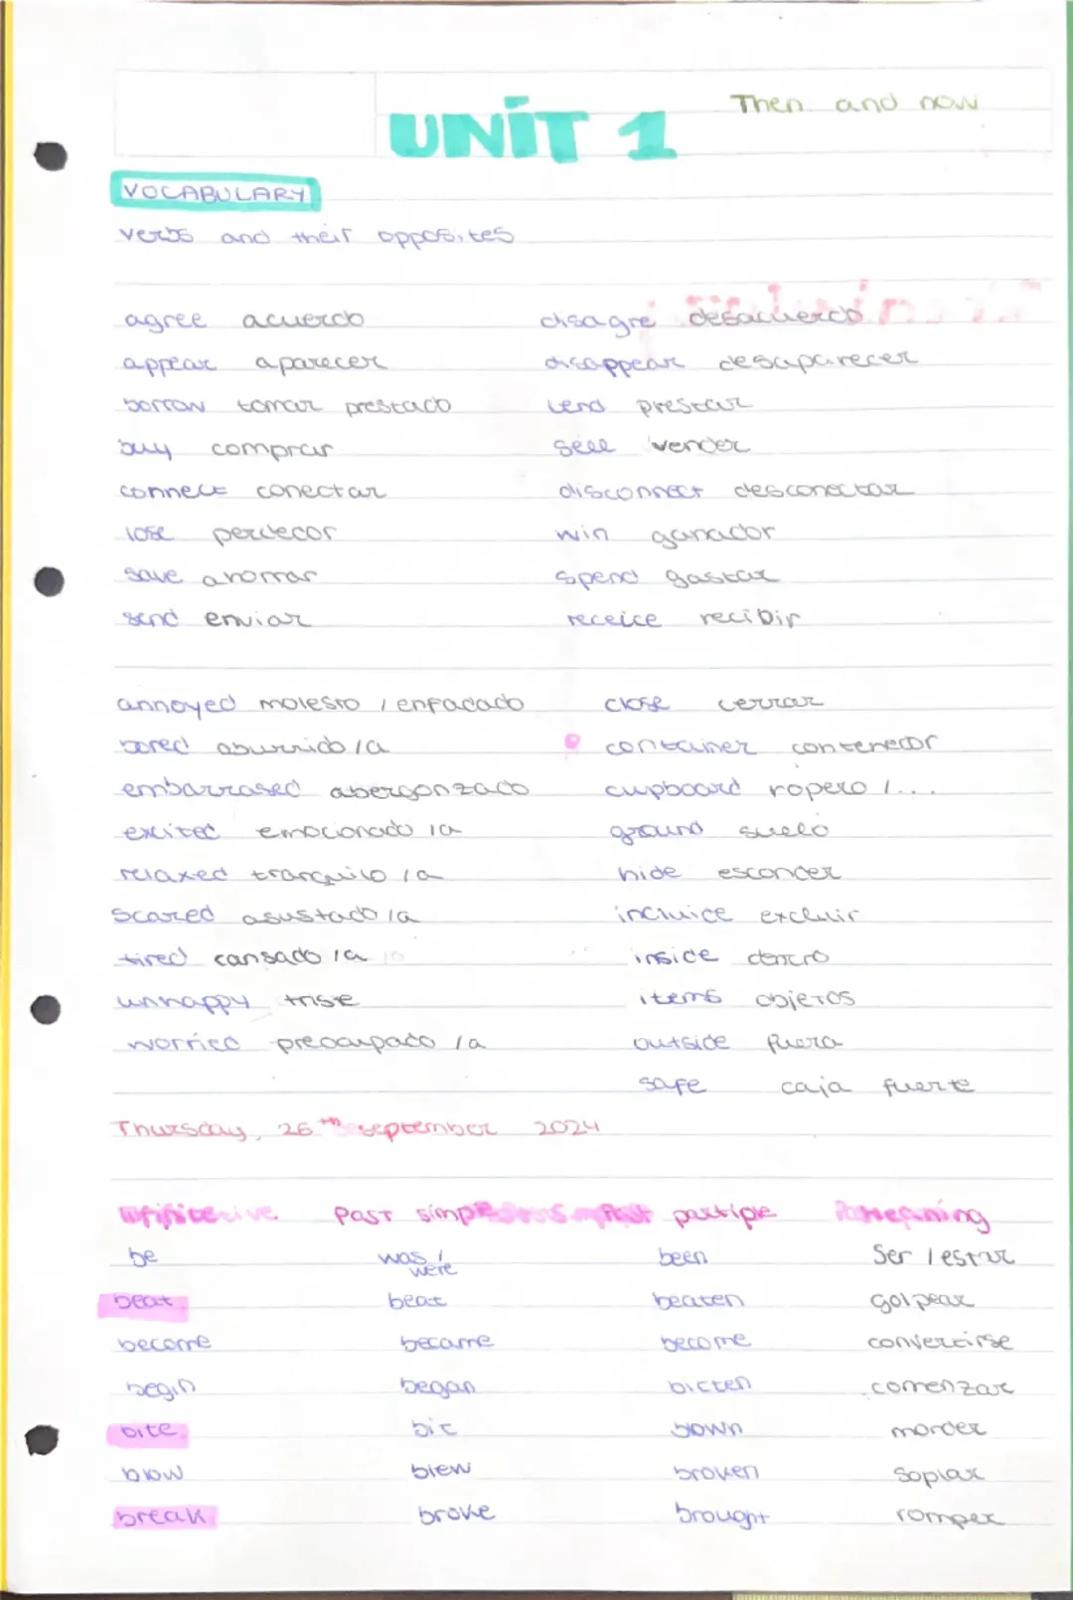 Then and now
UNIT 1
VOCABULARY
verbs and their opposites
agree acuerdo disagre desacuerdo
appear aparecer disappear desaparecer
borrow tomar prestado lend prestar
buy comprar sell vender
connect conectar disconnect desconectar
lose perdedor win ganador
save ahorrar spend gastar
send enviar receice recibir
annoyed molesto / enfadado close cerrar
bored aburrido /a container contenedor
embarrased abergonzado cupboard ropero /...
excited emocionado /a ground suelo
relaxed tranquilo /a hide esconder
scared asustado /a incluide excluir
tired cansado /a inside dentro
unhappy triste items objetos
worried preocupado /a outside fuera
safe caja fuerte
Thursday, 26th september 2024
Past partiple
be was / were been Ser / estar
beat beat beaten golpear
become became become convertirse
begin began bitten comenzar
bite bit blown morder
blow blew broken soplar
break broke brought romper